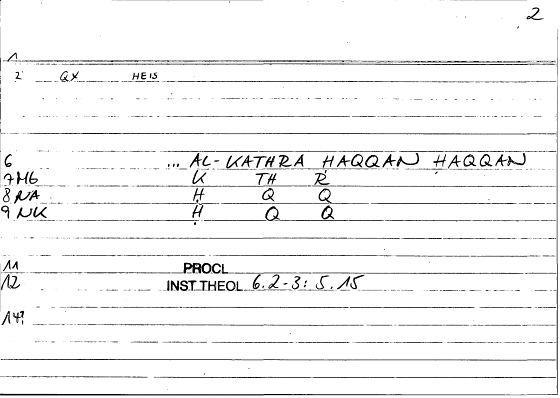 2
1
2 QX HEIS
6 ... AL-KATHRA ḤAQQAN ḤAQQAN
7 MG K TH R
8 NA Ḥ Q Q
9 NK Ḥ Q Q
11 PROCL
12 INST THEOL 6.2-3: 5.15
14?